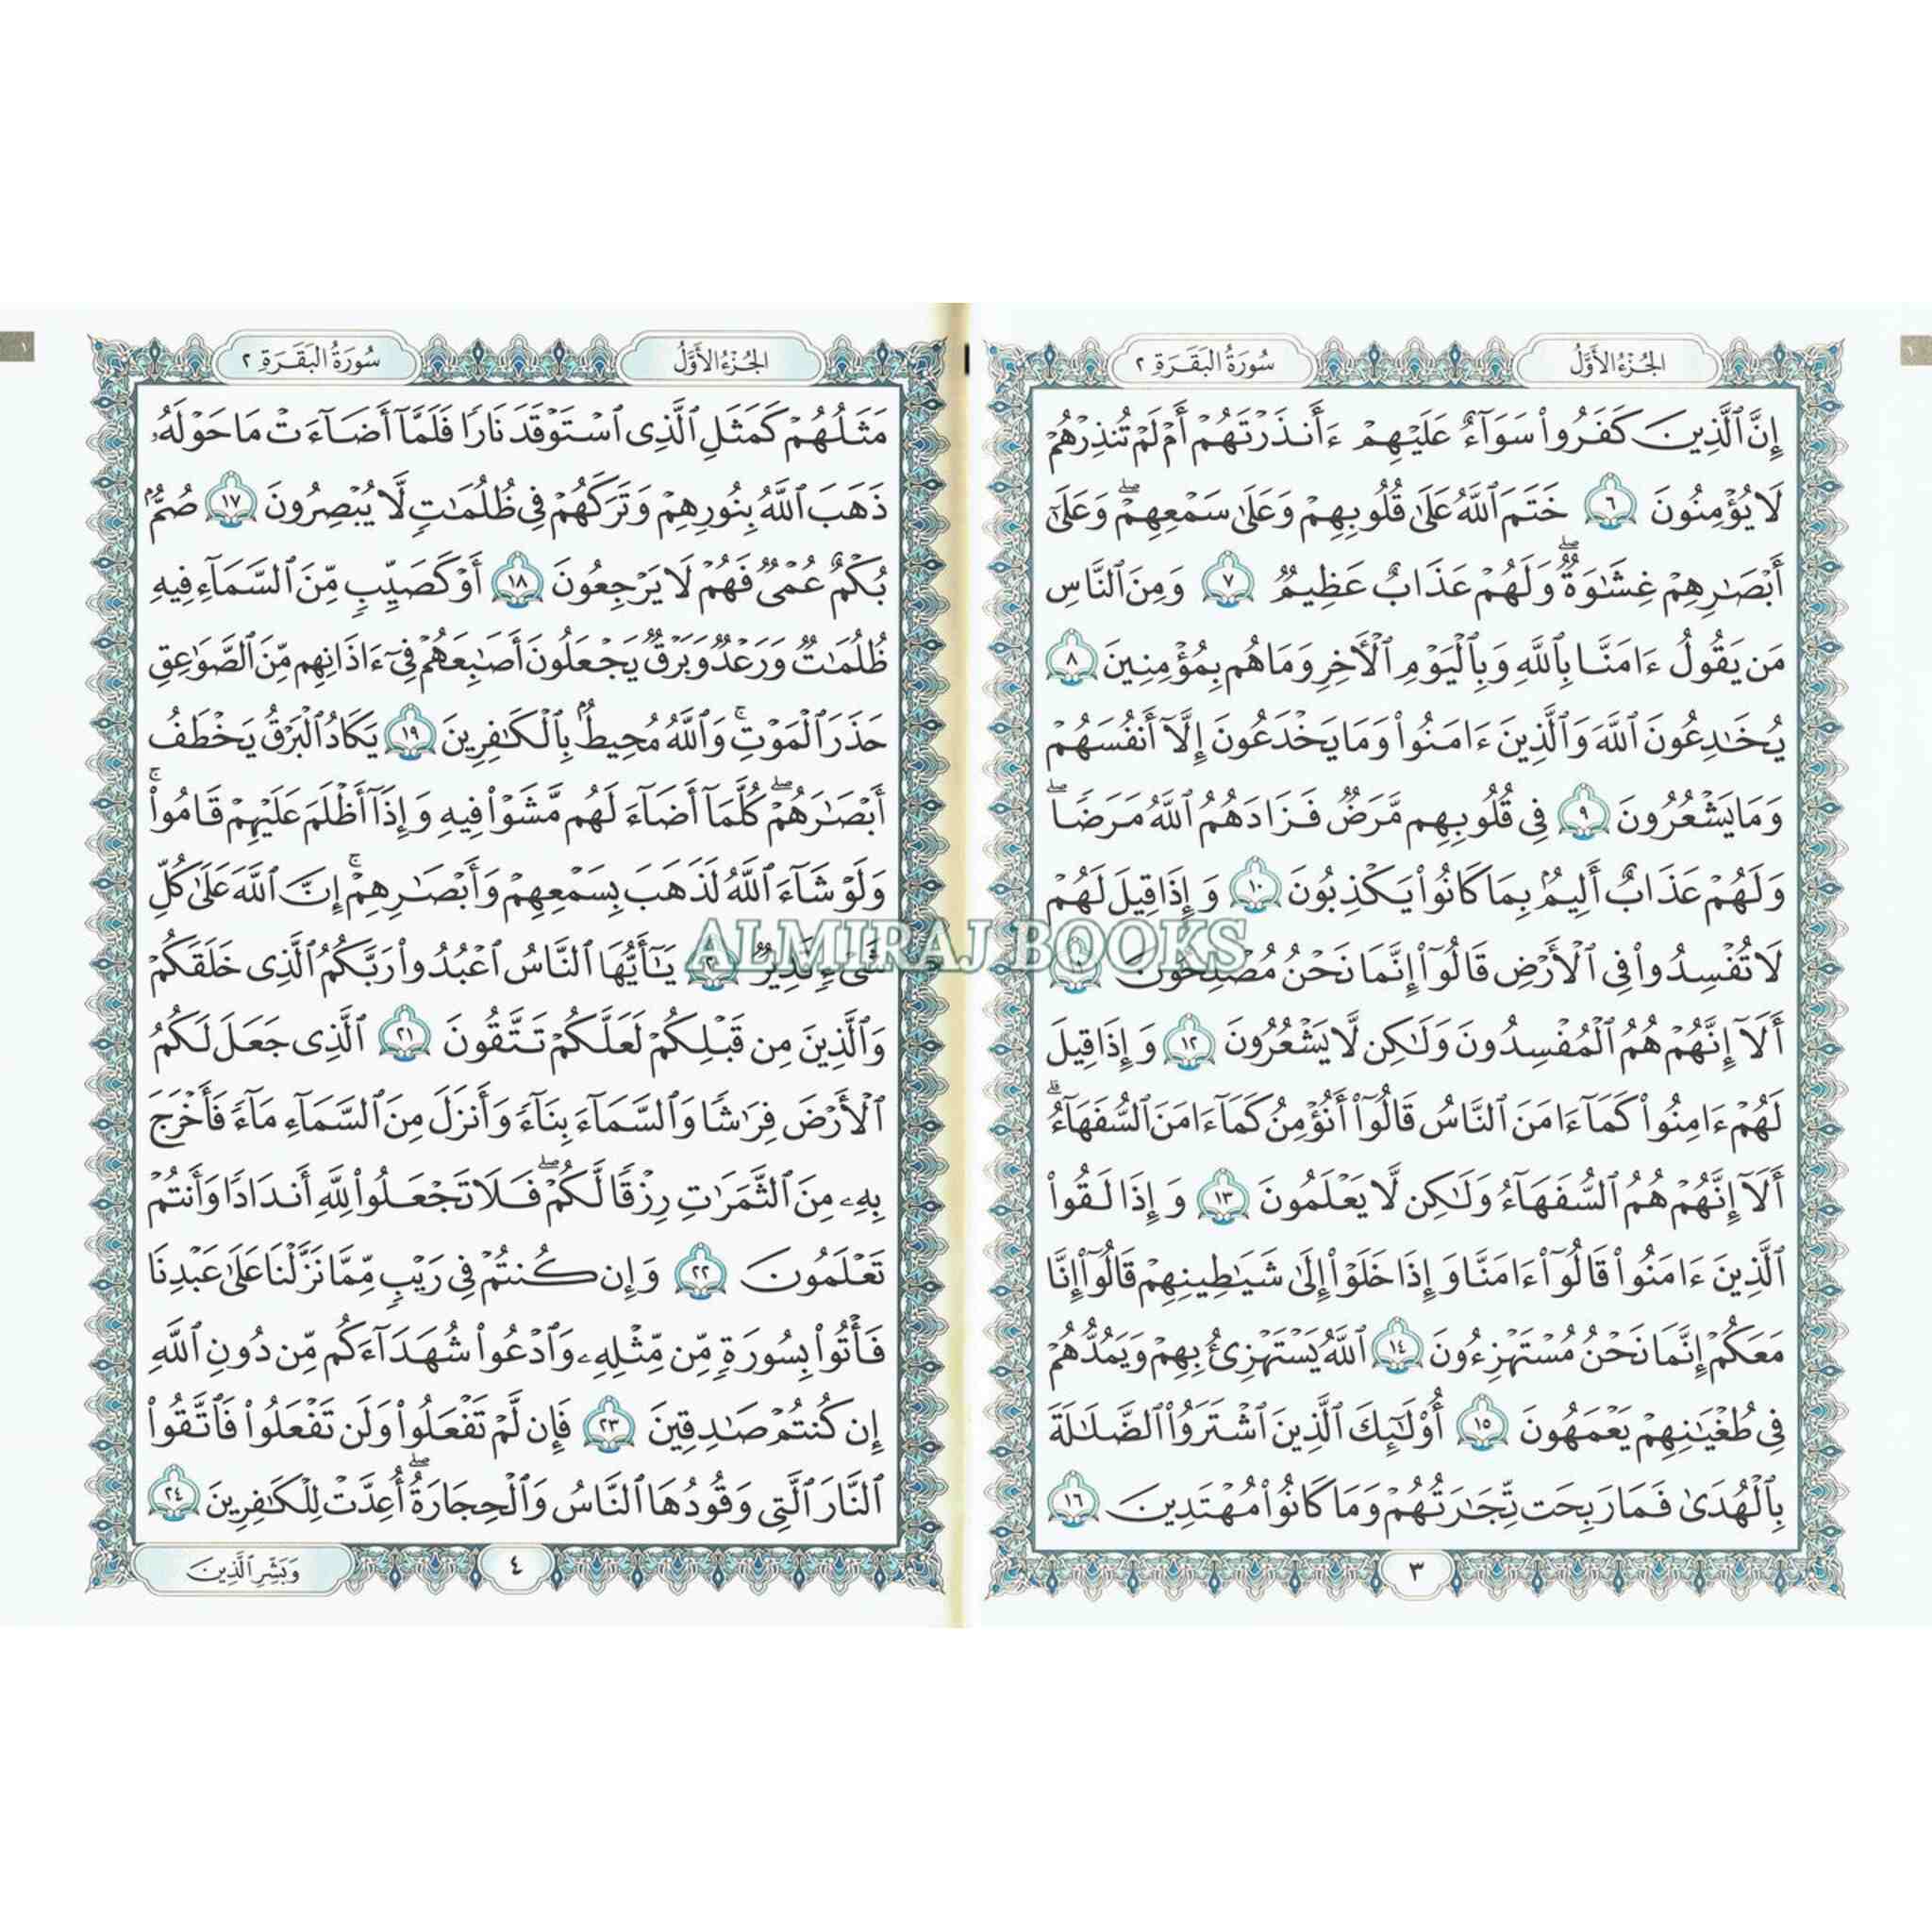 الجُزْءُ الأَوَّلُ
سُورَةُ البَقَرَةِ ٢
إِنَّ ٱلَّذِينَ كَفَرُوا۟ سَوَآءٌ عَلَيْهِمْ ءَأَنذَرْتَهُمْ أَمْ لَمْ تُنذِرْهُمْ
لَا يُؤْمِنُونَ ٦ خَتَمَ ٱللَّهُ عَلَىٰ قُلُوبِهِمْ وَعَلَىٰ سَمْعِهِمْ ۖ وَعَلَىٰٓ
أَبْصَٰرِهِمْ غِشَٰوَةٌ ۖ وَلَهُمْ عَذَابٌ عَظِيمٌ ٧ وَمِنَ ٱلنَّاسِ
مَن يَقُولُ ءَامَنَّا بِٱللَّهِ وَبِٱلْيَوْمِ ٱلْأَخِرِ وَمَا هُم بِمُؤْمِنِينَ ٨
يُخَٰدِعُونَ ٱللَّهَ وَٱلَّذِينَ ءَامَنُوا۟ وَمَا يَخْدَعُونَ إِلَّآ أَنفُسَهُمْ
وَمَا يَشْعُرُونَ ٩ فِى قُلُوبِهِم مَّرَضٌ فَزَادَهُمُ ٱللَّهُ مَرَضًا ۖ
وَلَهُمْ عَذَابٌ أَلِيمٌۢ بِمَا كَانُوا۟ يَكْذِبُونَ ١٠ وَإِذَا قِيلَ لَهُمْ
لَا تُفْسِدُوا۟ فِى ٱلْأَرْضِ قَالُوٓا۟ إِنَّمَا نَحْنُ مُصْلِحُونَ ١١
أَلَآ إِنَّهُمْ هُمُ ٱلْمُفْسِدُونَ وَلَٰكِن لَّا يَشْعُرُونَ ١٢ وَإِذَا قِيلَ
لَهُمْ ءَامِنُوا۟ كَمَآ ءَامَنَ ٱلنَّاسُ قَالُوٓا۟ أَنُؤْمِنُ كَمَآ ءَامَنَ ٱلسُّفَهَآءُ ۗ
أَلَآ إِنَّهُمْ هُمُ ٱلسُّفَهَآءُ وَلَٰكِن لَّا يَعْلَمُونَ ١٣ وَإِذَا لَقُوا۟
ٱلَّذِينَ ءَامَنُوا۟ قَالُوٓا۟ ءَامَنَّا وَإِذَا خَلَوْا۟ إِلَىٰ شَيَٰطِينِهِمْ قَالُوٓا۟ إِنَّا
مَعَكُمْ إِنَّمَا نَحْنُ مُسْتَهْزِءُونَ ١٤ ٱللَّهُ يَسْتَهْزِئُ بِهِمْ وَيَمُدُّهُمْ
فِى طُغْيَٰنِهِمْ يَعْمَهُونَ ١٥ أُو۟لَٰٓئِكَ ٱلَّذِينَ ٱشْتَرَوُا۟ ٱلضَّلَٰلَةَ
بِٱلْهُدَىٰ فَمَا رَبِحَت تِّجَٰرَتُهُمْ وَمَا كَانُوا۟ مُهْتَدِينَ ١٦
٣
الجُزْءُ الأَوَّلُ
سُورَةُ البَقَرَةِ ٢
مَثَلُهُمْ كَمَثَلِ ٱلَّذِى ٱسْتَوْقَدَ نَارًا فَلَمَّآ أَضَآءَتْ مَا حَوْلَهُۥ
ذَهَبَ ٱللَّهُ بِنُورِهِمْ وَتَرَكَهُمْ فِى ظُلُمَٰتٍ لَّا يُبْصِرُونَ ١٧ صُمٌّۢ
بُكْمٌ عُمْىٌ فَهُمْ لَا يَرْجِعُونَ ١٨ أَوْ كَصَيِّبٍ مِّنَ ٱلسَّمَآءِ فِيهِ
ظُلُمَٰتٌ وَرَعْدٌ وَبَرْقٌ يَجْعَلُونَ أَصَٰبِعَهُمْ فِىٓ ءَاذَانِهِم مِّنَ ٱلصَّوَٰعِقِ
حَذَرَ ٱلْمَوْتِ ۚ وَٱللَّهُ مُحِيطٌۢ بِٱلْكَٰفِرِينَ ١٩ يَكَادُ ٱلْبَرْقُ يَخْطَفُ
أَبْصَٰرَهُمْ ۖ كُلَّمَآ أَضَآءَ لَهُم مَّشَوْا۟ فِيهِ وَإِذَآ أَظْلَمَ عَلَيْهِمْ قَامُوا۟ ۚ
وَلَوْ شَآءَ ٱللَّهُ لَذَهَبَ بِسَمْعِهِمْ وَأَبْصَٰرِهِمْ ۚ إِنَّ ٱللَّهَ عَلَىٰ كُلِّ
شَىْءٍ قَدِيرٌ ٢٠ يَٰٓأَيُّهَا ٱلنَّاسُ ٱعْبُدُوا۟ رَبَّكُمُ ٱلَّذِى خَلَقَكُمْ
وَٱلَّذِينَ مِن قَبْلِكُمْ لَعَلَّكُمْ تَتَّقُونَ ٢١ ٱلَّذِى جَعَلَ لَكُمُ
ٱلْأَرْضَ فِرَٰشًا وَٱلسَّمَآءَ بِنَآءً وَأَنزَلَ مِنَ ٱلسَّمَآءِ مَآءً فَأَخْرَجَ
بِهِۦ مِنَ ٱلثَّمَرَٰتِ رِزْقًا لَّكُمْ ۖ فَلَا تَجْعَلُوا۟ لِلَّهِ أَندَادًا وَأَنتُمْ
تَعْلَمُونَ ٢٢ وَإِن كُنتُمْ فِى رَيْبٍ مِّمَّا نَزَّلْنَا عَلَىٰ عَبْدِنَا
فَأْتُوا۟ بِسُورَةٍ مِّن مِّثْلِهِۦ وَٱدْعُوا۟ شُهَدَآءَكُم مِّن دُونِ ٱللَّهِ
إِن كُنتُمْ صَٰدِقِينَ ٢٣ فَإِن لَّمْ تَفْعَلُوا۟ وَلَن تَفْعَلُوا۟ فَٱتَّقُوا۟
ٱلنَّارَ ٱلَّتِى وَقُودُهَا ٱلنَّاسُ وَٱلْحِجَارَةُ ۖ أُعِدَّتْ لِلْكَٰفِرِينَ ٢٤
٤
وَبَشِّرِ ٱلَّذِينَ
ALMIRAJ BOOKS